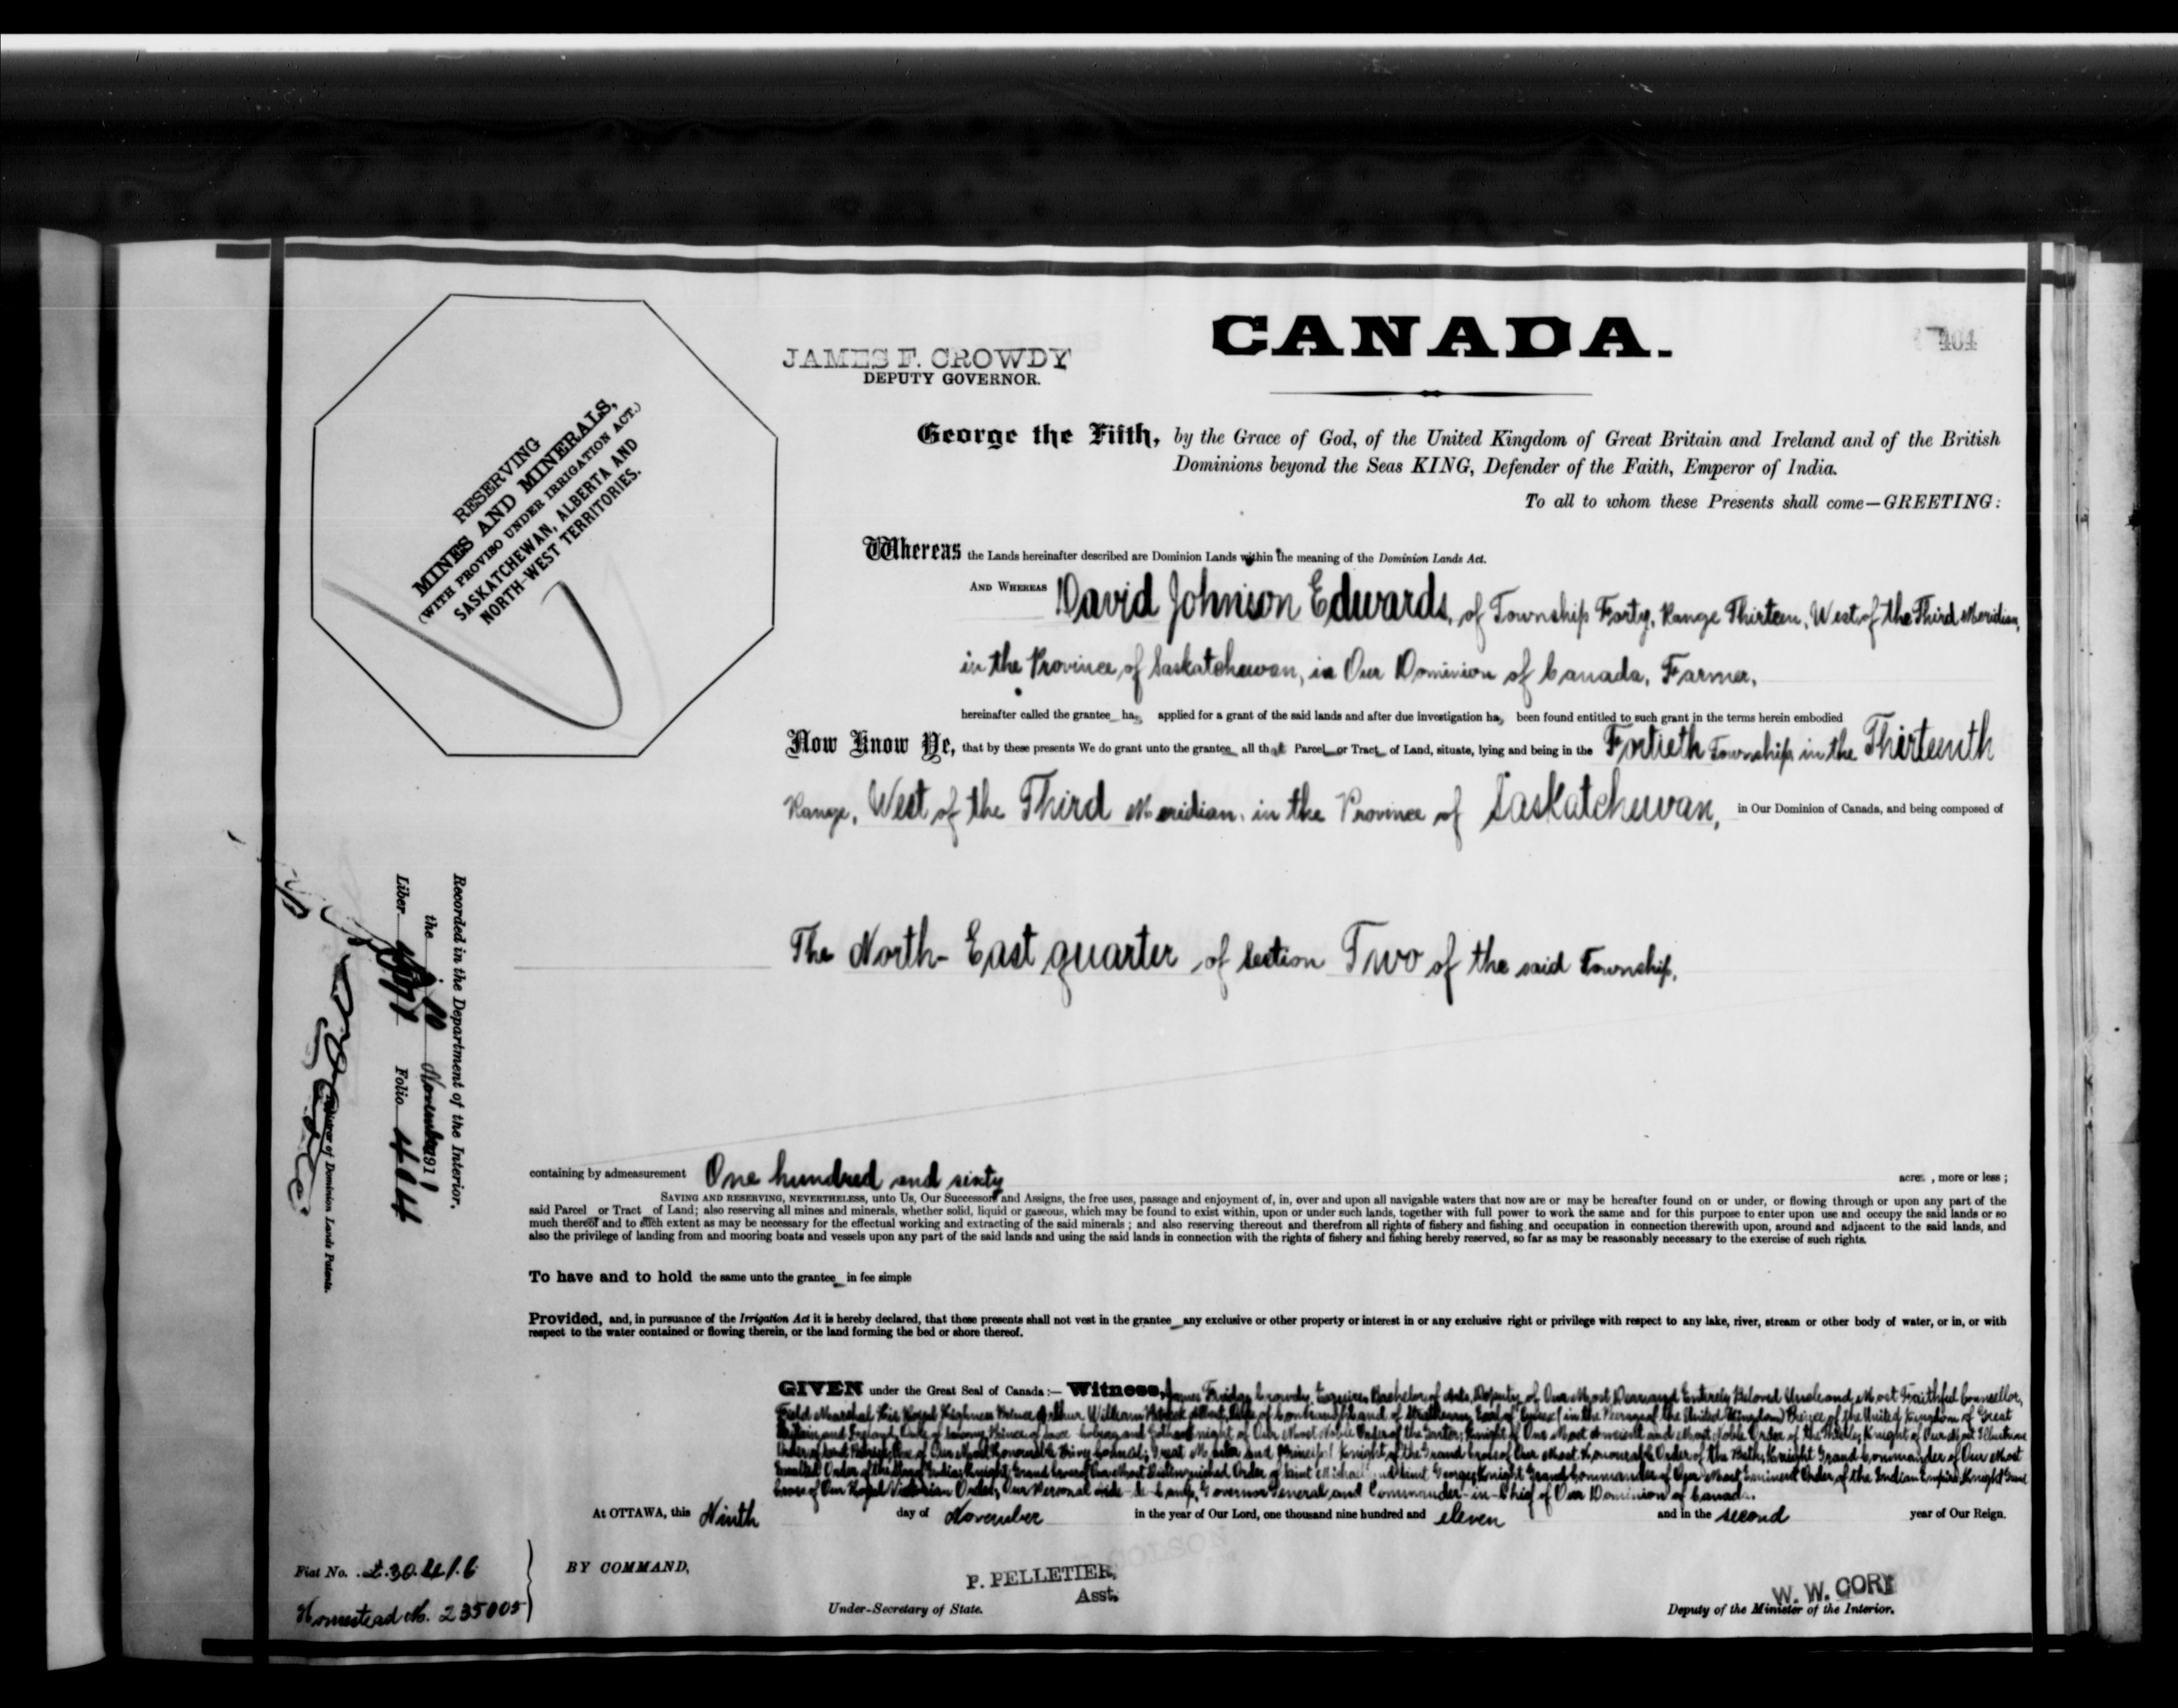 CANADA.
404
JAMES F. CROWDY
DEPUTY GOVERNOR.
RESERVING
MINES AND MINERALS,
(WITH PROVISO UNDER IRRIGATION ACT.)
SASKATCHEWAN, ALBERTA AND
NORTH-WEST TERRITORIES.
George the Fifth, by the Grace of God, of the United Kingdom of Great Britain and Ireland and of the British
Dominions beyond the Seas KING, Defender of the Faith, Emperor of India.
To all to whom these Presents shall come—GREETING:
Whereas the Lands hereinafter described are Dominion Lands within the meaning of the Dominion Lands Act.
AND WHEREAS David Johnson Edwards, of Township Forty, Range Thirteen, West of the Third Meridian,
in the Province of Saskatchewan, in Our Dominion of Canada, Farmer,
hereinafter called the grantee has applied for a grant of the said lands and after due investigation has been found entitled to such grant in the terms herein embodied
Now Know Ye, that by these presents We do grant unto the grantee all that Parcel or Tract of Land, situate, lying and being in the Fortieth Township in the Thirteenth
Range, West of the Third Meridian, in the Province of Saskatchewan, in Our Dominion of Canada, and being composed of
The North-East quarter of section Two of the said Township,
Recorded in the Department of the Interior,
the November 1911
Liber Folio
Registrar of Dominion Lands Patents.
containing by admeasurement One hundred and sixty acres, more or less;
SAVING AND RESERVING, NEVERTHELESS, unto Us, Our Successors and Assigns, the free uses, passage and enjoyment of, in, over and upon all navigable waters that now are or may be hereafter found on or under, or flowing through or upon any part of the
said Parcel or Tract of Land; also reserving all mines and minerals, whether solid, liquid or gaseous, which may be found to exist within, upon or under such lands, together with full power to work the same and for this purpose to enter upon use and occupy the said lands or so
much thereof and to such extent as may be necessary for the effectual working and extracting of the said minerals; and also reserving thereout and therefrom all rights of fishery and fishing and occupation in connection therewith upon, around and adjacent to the said lands, and
also the privilege of landing from and mooring boats and vessels upon any part of the said lands and using the said lands in connection with the rights of fishery and fishing hereby reserved, so far as may be reasonably necessary to the exercise of such rights.
To have and to hold the same unto the grantee in fee simple
Provided, and, in pursuance of the Irrigation Act it is hereby declared, that these presents shall not vest in the grantee any exclusive or other property or interest in or any exclusive right or privilege with respect to any lake, river, stream or other body of water, or in, or with
respect to the water contained or flowing therein, or the land forming the bed or shore thereof.
GIVEN under the Great Seal of Canada:— Witness, James Crowdy, Esquire, Bachelor of Arts, Deputy of Our Most Dear and Entirely Beloved Uncle and Most Faithful Counsellor,
Field Marshal His Royal Highness Prince Arthur William Patrick Albert, Duke of Connaught and of Strathearn, Earl of Sussex (in the Peerage of the United Kingdom) Prince of the United Kingdom of Great
Britain and Ireland, Duke of Saxony, Prince of Saxe-Coburg and Gotha; Knight of Our Most Noble Order of the Garter; Knight of Our Most Ancient and Most Noble Order of the Thistle; Knight of Our Most Illustrious
Order of Saint Patrick; One of Our Most Honourable Privy Council; Great Master and Principal Knight of the Grand Cross of Our Most Honourable Order of the Bath; Knight Grand Commander of Our Most
Exalted Order of the Star of India; Knight Grand Cross of Our Most Distinguished Order of Saint Michael and Saint George; Knight Grand Commander of Our Most Eminent Order of the Indian Empire; Knight Grand
Cross of Our Royal Victorian Order; Our Personal Aide-de-Camp, Governor General and Commander-in-Chief of Our Dominion of Canada.
At OTTAWA, this Ninth day of November in the year of Our Lord, one thousand nine hundred and eleven and in the second year of Our Reign.
Fiat No. 230416
Homestead No. 235005
BY COMMAND,
P. PELLETIER,
Asst.
Under-Secretary of State.
W. W. CORY
Deputy of the Minister of the Interior.